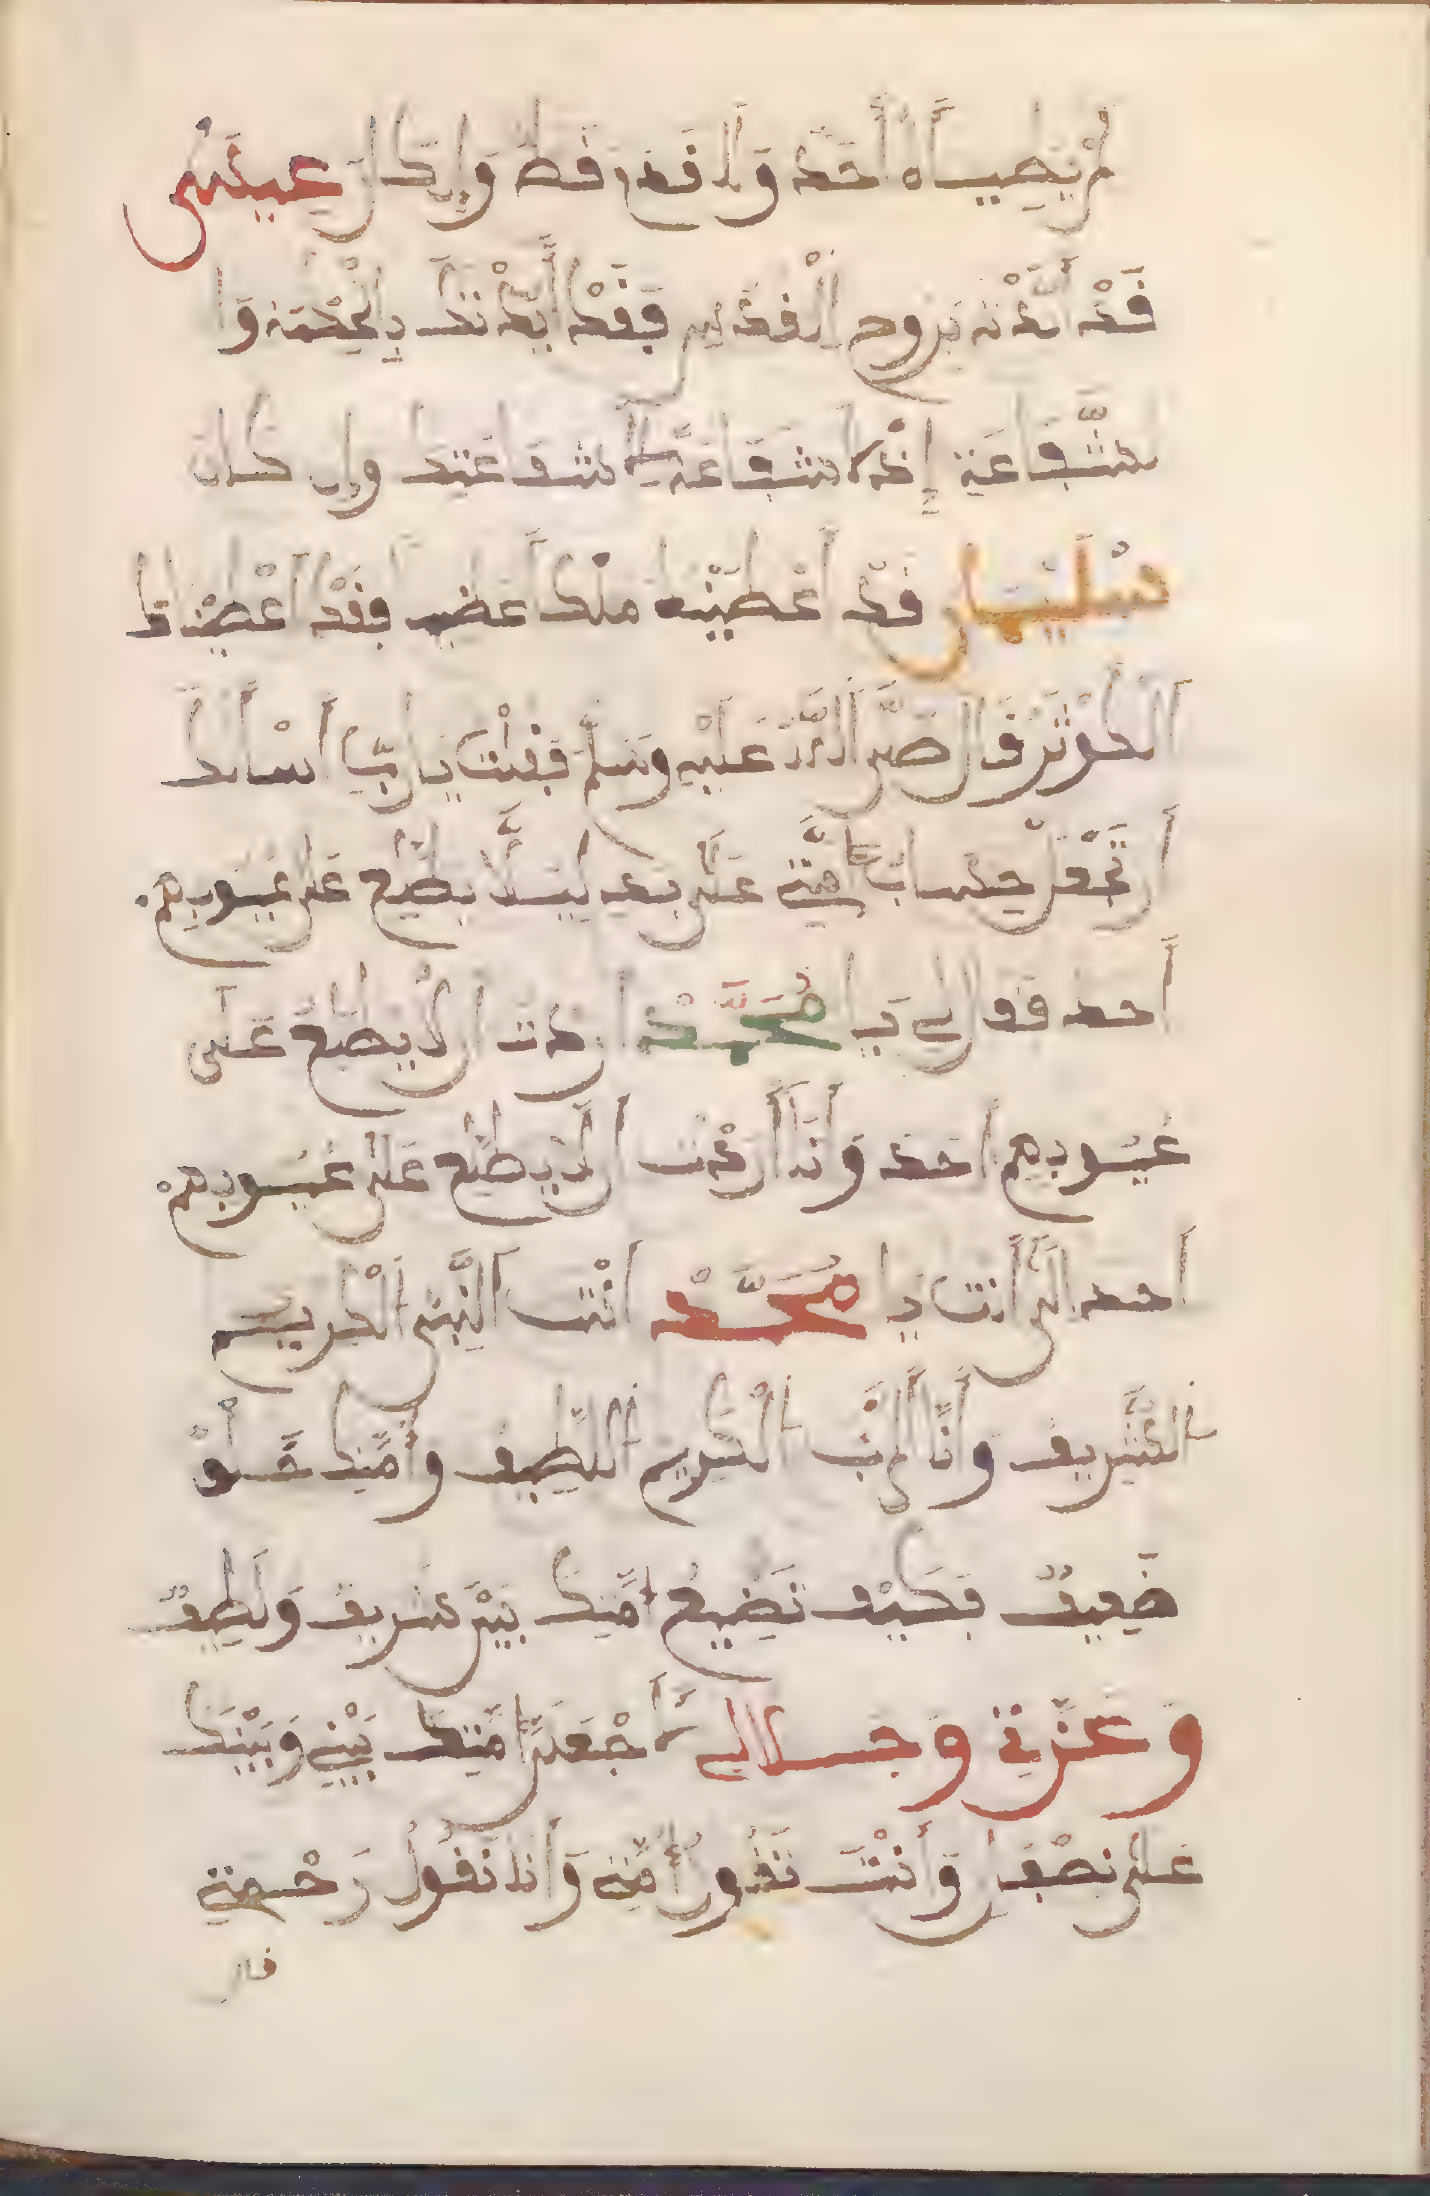 لم يطيأه أحد ولا قدر قط وإن كان عيسى
قد أيدته بروح القدس فقد أيدتك بالحكمة وا
لشفاعة إذا شفاعة شفاعتك وإن كان
سليمان قد أعطيته ملكا عظيم فقد أعطيتك
الكوثر قال صلى الله عليه وسلم فقلت يا رب أسألك
أن تجعل حساب أمتي على يد ليلا يطلع على عيوبهم
أحد فقال لي يا محمد اردت ان لا يطلع على
عيوبهم احد وأنا أردت ان لا يطلع على عيوبهم
احد انت يا محمد انت النبي الكريم
الشريف وأنا الرب الكريم اللطيف وأمتك خلق
ضعيف فكيف تضيع امتك بين شريف ولطيف
وعزتي وجلالي اجعل امتك بيني وبينك
على نصفين وأنت تقول أمتي وأنا نقول رحمتي
قال